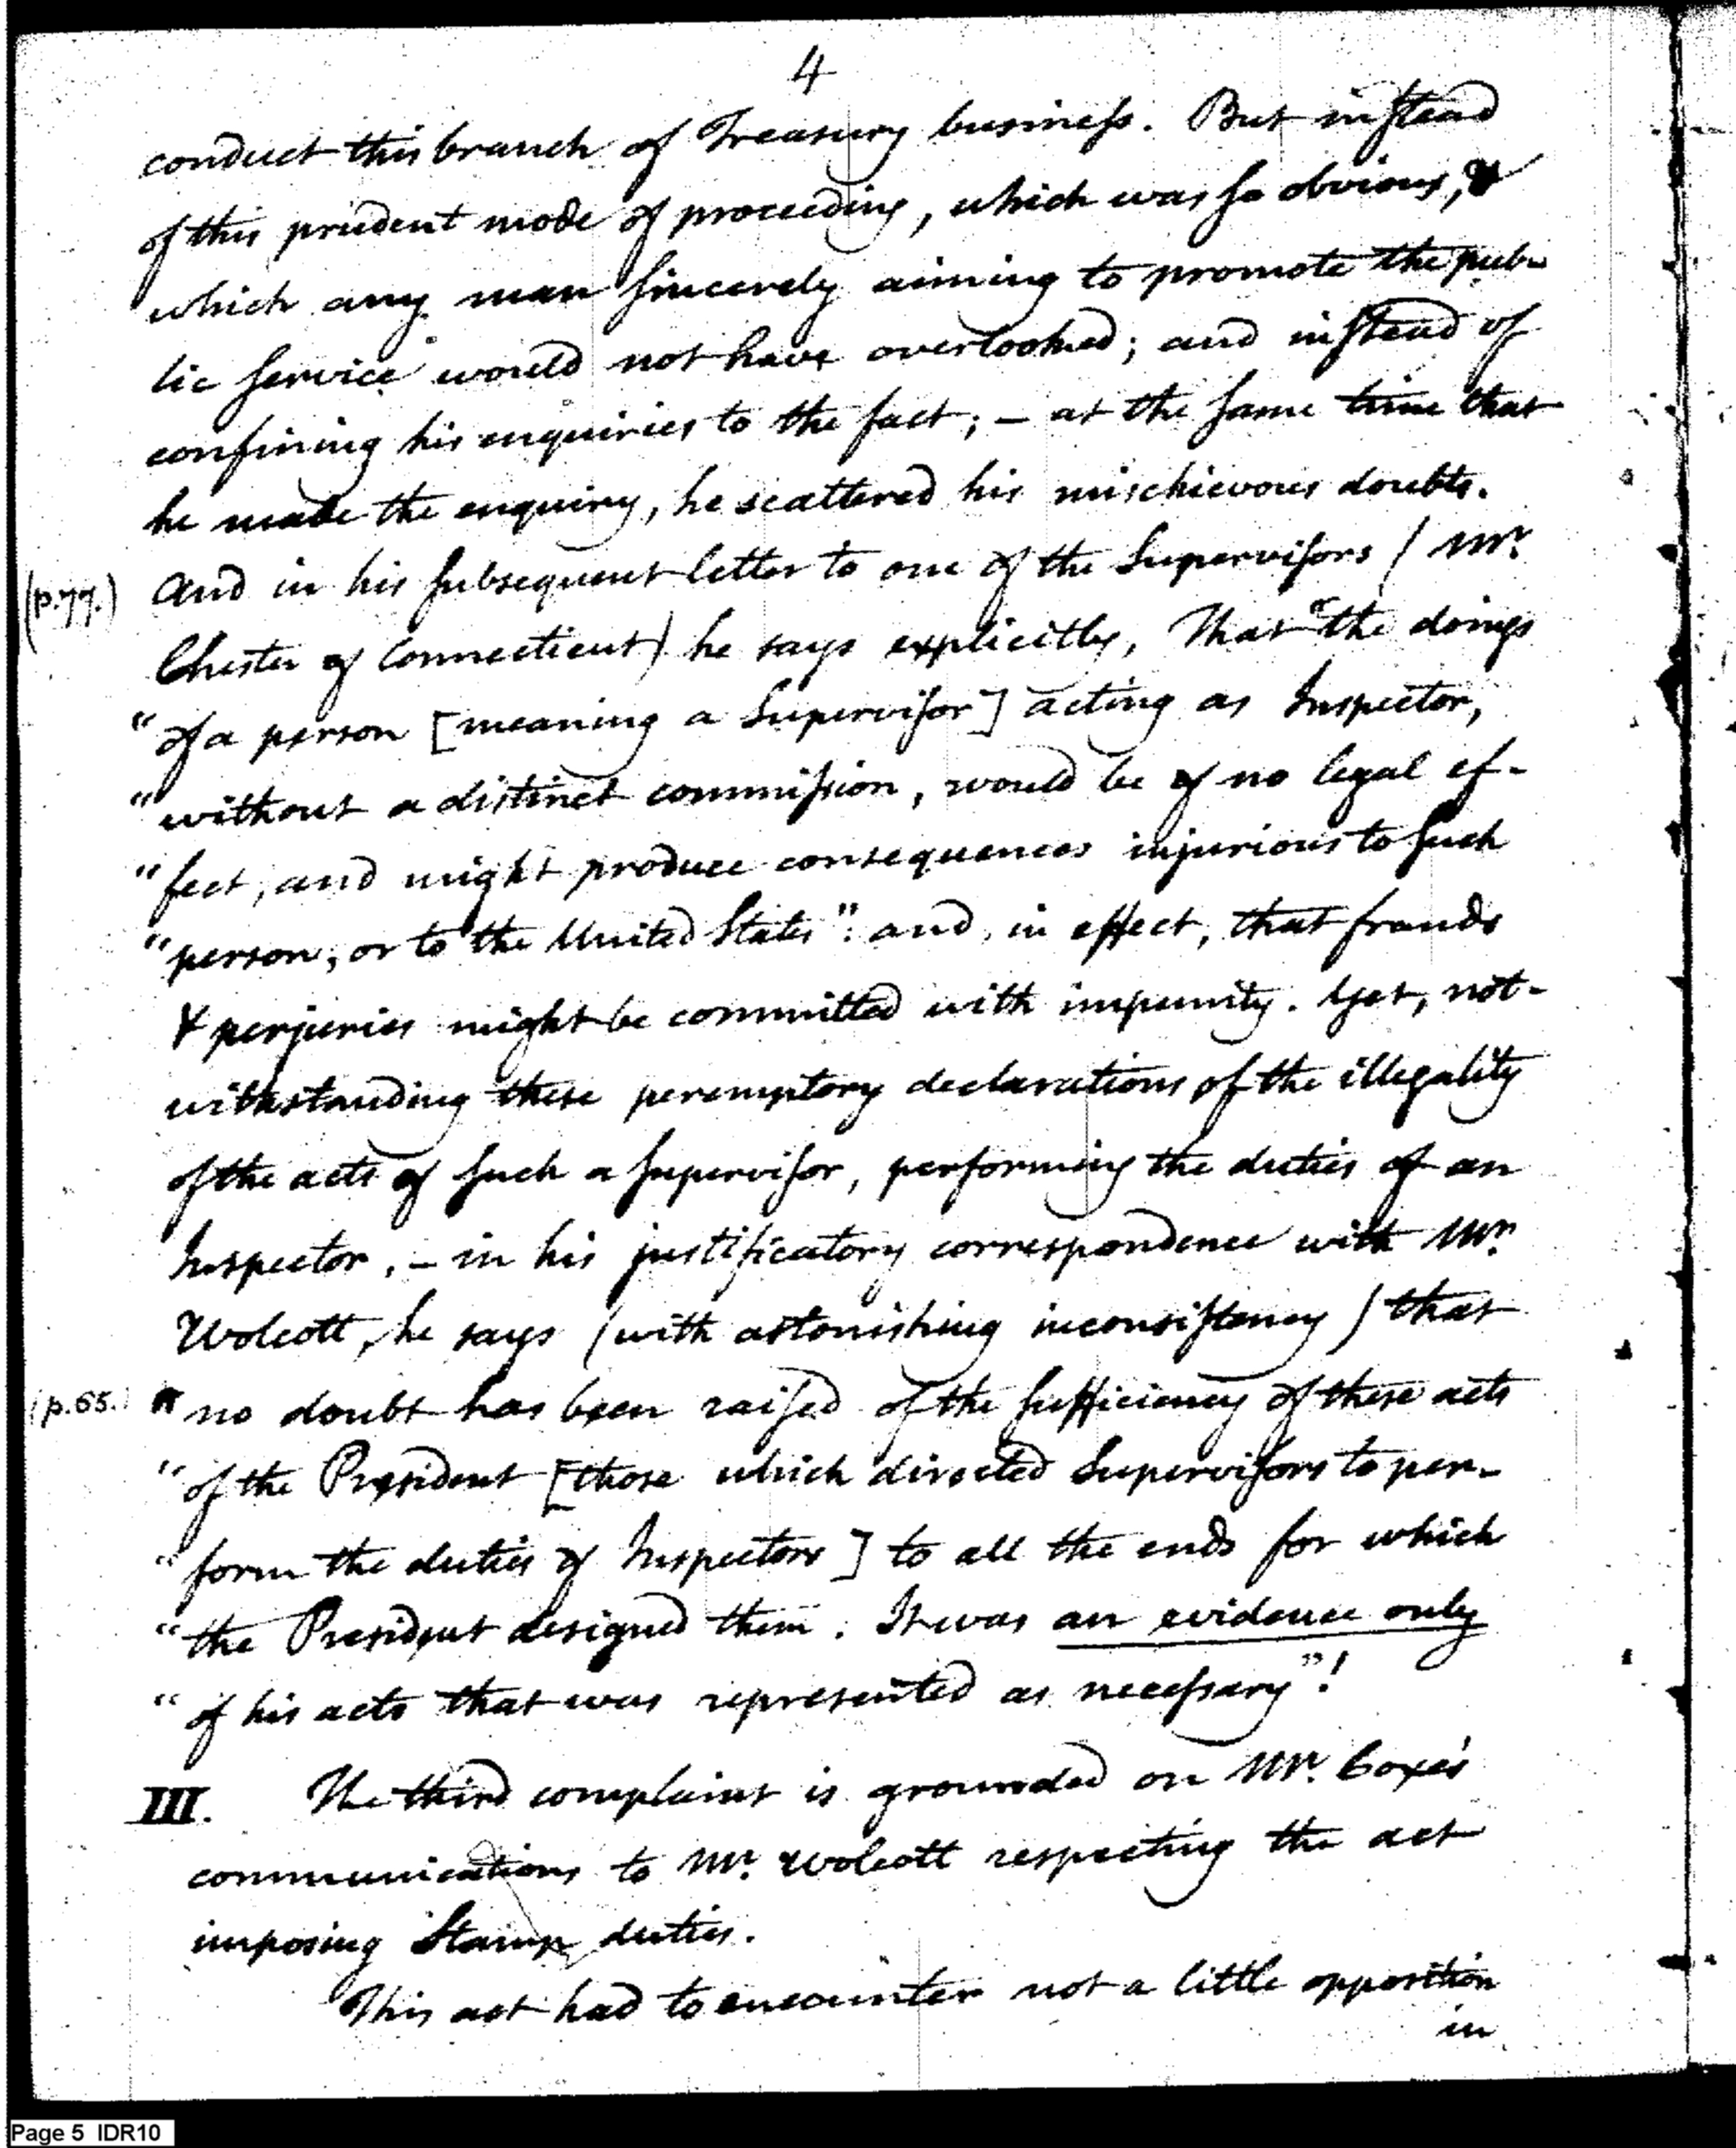 4
conduct this branch of Treasury business. But instead
of this prudent mode of proceeding, which was so obvious, &
which any man sincerely aiming to promote the pub-
lic service would not have overlooked; and instead of
confining his enquiries to the fact; – at the same time that
he made the enquiry, he scattered his mischievous doubts.
(p.77.) And in his subsequent letter to one of the Supervisors (Mr.
Chester of Connecticut) he says explicitly, That "the doings
"of a person [meaning a Supervisor] acting as Inspector,
"without a distinct commission, would be of no legal ef-
"fect, and might produce consequences injurious to such
"person, or to the United States": and, in effect, that frauds
& perjuries might be committed with impunity. Yet, not-
withstanding these peremptory declarations of the illegality
of the acts of such a supervisor, performing the duties of an
Inspector, – in his justificatory correspondence with Mr.
Wolcott, he says (with astonishing inconsistency) that
(p.65.) "no doubt has been raised of the sufficiency of these acts
"of the President [those which directed Supervisors to per-
"form the duties of Inspectors] to all the ends for which
"the President designed them. It was an evidence only
"of his acts that was represented as necessary"!
III. The third complaint is grounded on Mr. Coxe's
communications to Mr. Wolcott respecting the act
imposing Stamp duties.
This act had to encounter not a little opposition
in
Page 5 IDR10